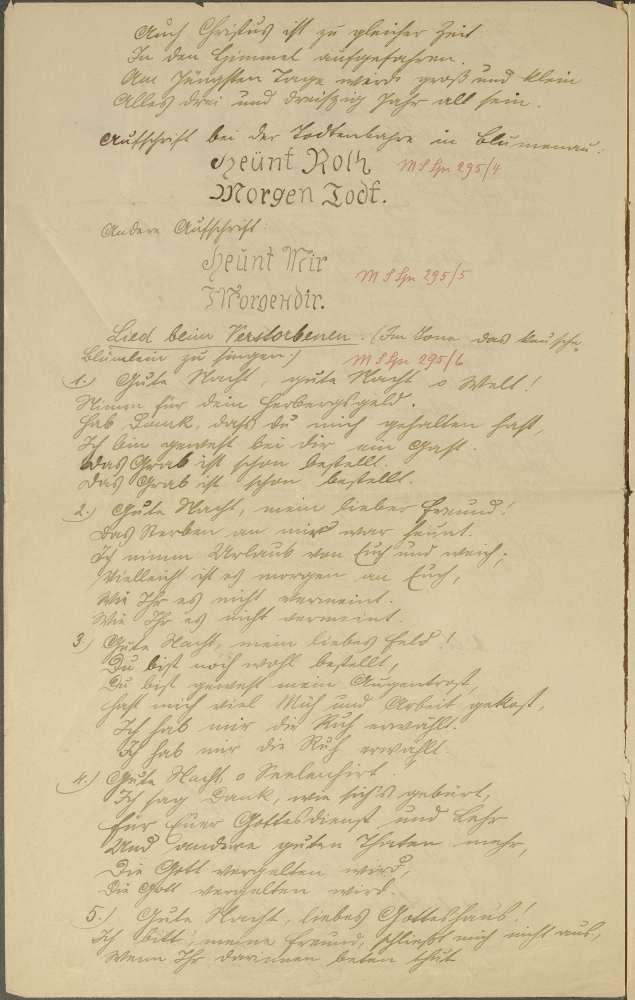 Auch Christus ist zu gleicher Zeit
In den Himmel aufgefahren.
Am Jüngsten Tage wird groß und klein
Alles drei und dreißzig Jahr alt sein.
Aufschrift bei der Todtenbahre in Blumenau:
Heünt Roth
M S Spr 295/4
Morgen Todt.
Andere Aufschrift:
Heünt Mir
M S Spr 295/5
Morgen dir.
Lied beim Verstorbenen. (Im Tone das keusche
Blümlein zu singen.)
M S Spr 295/6
1.) Gute Nacht, gute Nacht o Welt!
Nimm für dein Herbergsgeld.
Hab Dank, daß du mich gehalten hast,
Ich bin gewest bei dir ein Gast.
Das Grab ist schon bestellt.
Das Grab ist schon bestellt.
2.) Gute Nacht, mein lieber Freund!
Das Sterben an mir war heunt.
Ich nimm Urlaub von Euch und weich;
Vielleicht ist es morgen an Euch,
Wie Ihr es nicht vermeint.
Wie Ihr es nicht vermeint.
3.) Gute Nacht, mein liebes Feld!
Du bist noch wohl bestellt,
Du bist gewest mein Augentrost,
Hast mich viel Müh und Arbeit gekost,
Ich hab mir die Ruh erwählt.
Ich hab mir die Ruh erwählt.
4.) Gute Nacht o Seelenhirt.
Ich sag Dank, wie sich's gebürt,
Für Euer Gottesdienst und Lehr
Und andere guten Thaten mehr,
Die Gott vergelten wird,
Die Gott vergelten wird.
5.) Gute Nacht, liebes Gotteshaus!
Ich bitt', meine Freund, schließt mich nicht aus,
Wenn Ihr darinnen beten thut